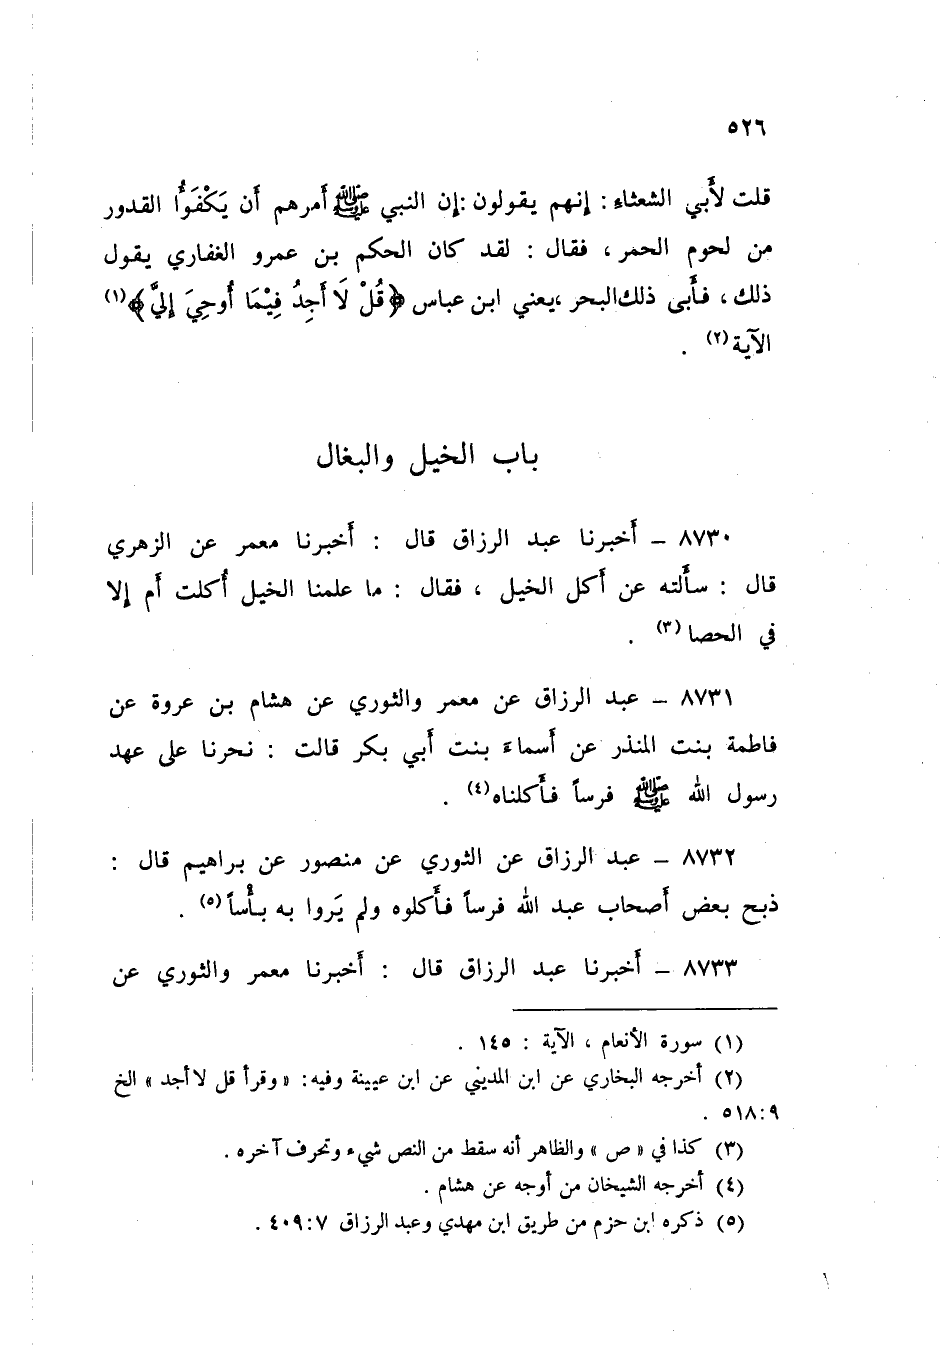 ٥٢٦
قلت لأبي الشعثاء : إنهم يقولون :إن النبي ﷺ أمرهم أن يَكْفَوُّا القدور
من لحوم الحمر ، فقال : لقد كان الحكم بن عمرو الغفاري يقول
ذلك ، فأبى ذلك البحر ،يعني ابن عباس ﴿قُلْ لَا أَجِدُ فِيْمَا أُوحِيَ إِليَّ﴾(١)
الآية(٢) .
باب الخيل والبغال
٨٧٣٠ – أخبرنا عبد الرزاق قال : أخبرنا معمر عن الزهري
قال : سألته عن أكل الخيل ، فقال : ما علمنا الخيل أُكلت أم إلا
في الحصا(٣) .
٨٧٣١ – عبد الرزاق عن معمر والثوري عن هشام بن عروة عن
فاطمة بنت المنذر عن أسماءَ بنت أبي بكر قالت : نحرنا على عهد
رسول الله ﷺ فرساً فأكلناه(٤) .
٨٧٣٢ – عبد الرزاق عن الثوري عن منصور عن براهيم قال :
ذبح بعض أصحاب عبد الله فرساً فأكلوه ولم يَروا به بأْساً(٥) .
٨٧٣٣ – أخبرنا عبد الرزاق قال : أخبرنا معمر والثوري عن
(١) سورة الأنعام ، الآية : ١٤٥ .
(٢) أخرجه البخاري عن ابن المديني عن ابن عيينة وفيه: « وقرأ قل لا أجد » الخ
٩:٥١٨ .
(٣) كذا في « ص » والظاهر أنه سقط من النص شيء وتحرف آخره .
(٤) أخرجه الشيخان من أوجه عن هشام .
(٥) ذكره ابن حزم من طريق ابن مهدي وعبد الرزاق ٧:٤٠٩ .